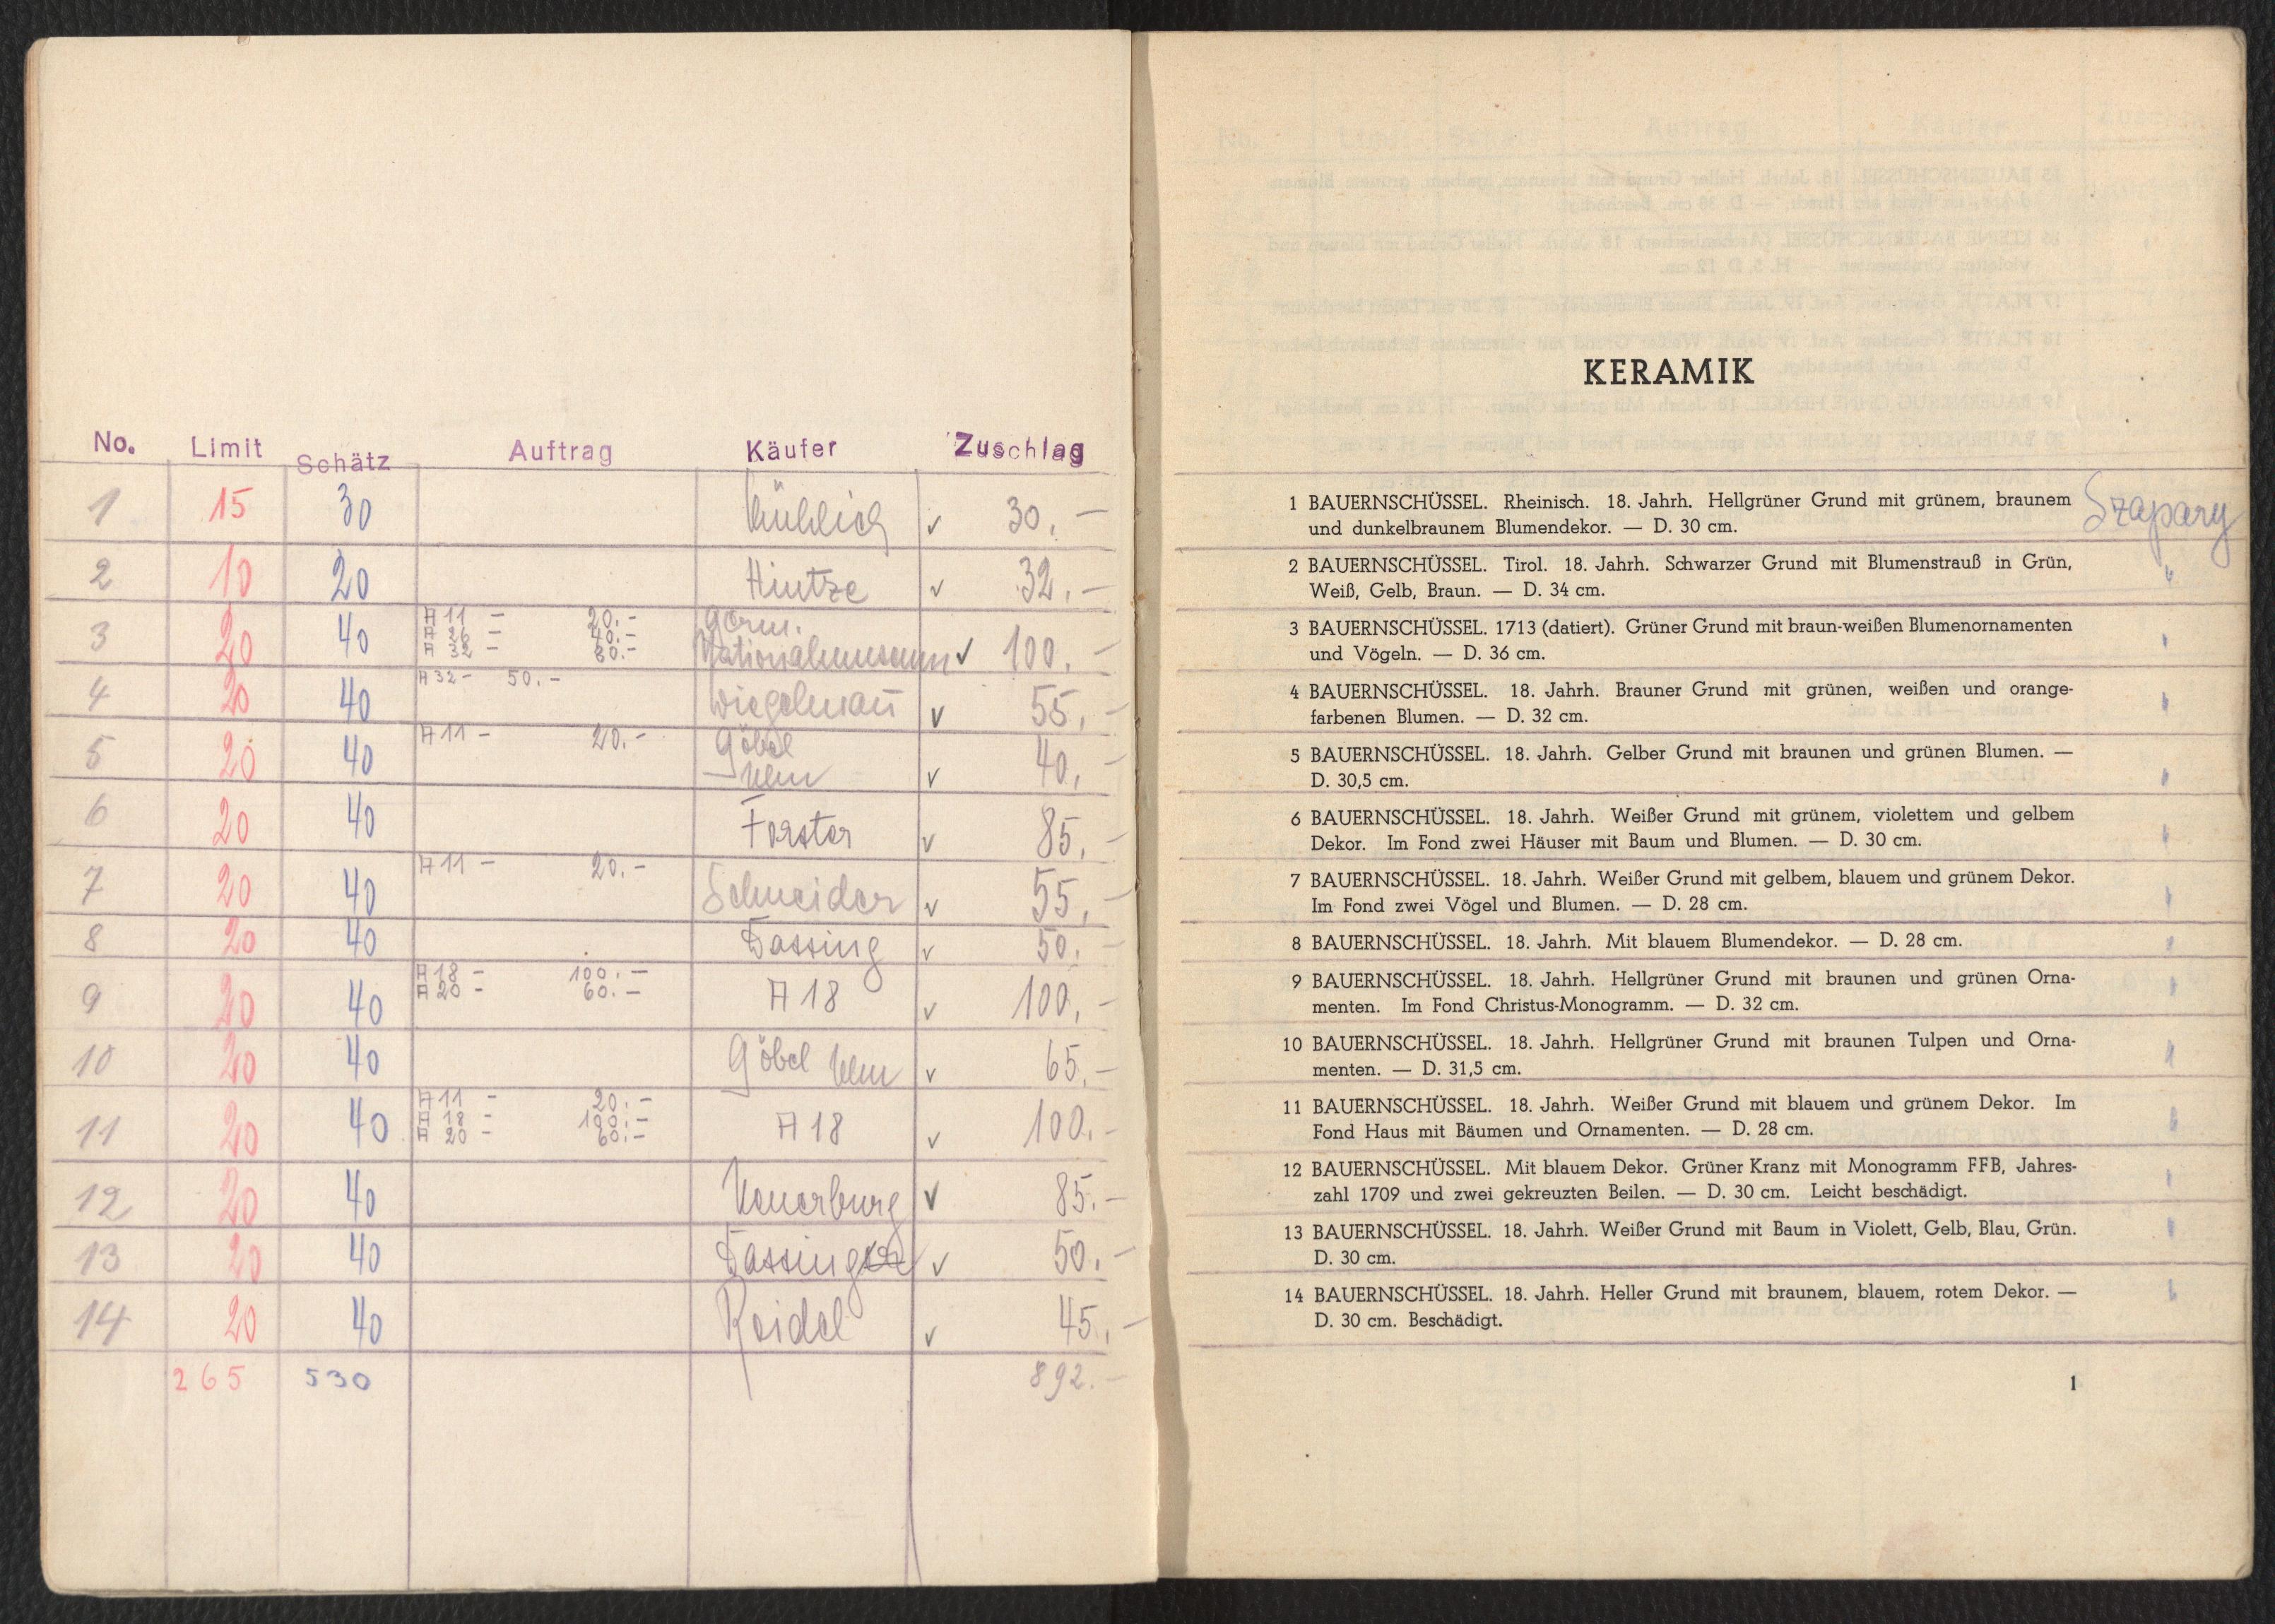 No. Limit Schätz Auftrag Käufer Zuschlag
1 15 30 v 30.-
2 10 20 Hintze v 32.-
3 20 40 A 11 - 20.- Germ.
A 26 - 40.- Nationalmuseum v 100.-
A 32 - 80.-
4 20 40 A 32 - 50.- Wiegelmañ v 55.-
5 20 40 A 11 - 20.- Göbel
Ulm v 40.-
6 20 40 Forster v 85.-
7 20 40 A 11 - 20.- Schneider v 55.-
8 20 40 Dassing v 50.-
9 20 40 A 18 - 100.- A 18 v 100.-
A 20 - 60.-
10 20 40 Göbel Ulm v 65.-
11 20 40 A 11 - 20.- A 18 v 100.-
A 18 - 100.-
A 20 - 60.-
12 20 40 Neuerburg v 85.-
13 20 40 Dassing v 50.-
14 20 40 Reidel v 45.-
265 530 892.-
KERAMIK
1 BAUERNSCHÜSSEL. Rheinisch. 18. Jahrh. Hellgrüner Grund mit grünem, braunem Szapary
und dunkelbraunem Blumendekor. — D. 30 cm.
2 BAUERNSCHÜSSEL. Tirol. 18. Jahrh. Schwarzer Grund mit Blumenstrauß in Grün, "
Weiß, Gelb, Braun. — D. 34 cm.
3 BAUERNSCHÜSSEL. 1713 (datiert). Grüner Grund mit braun-weißen Blumenornamenten "
und Vögeln. — D. 36 cm.
4 BAUERNSCHÜSSEL. 18. Jahrh. Brauner Grund mit grünen, weißen und orange- "
farbenen Blumen. — D. 32 cm.
5 BAUERNSCHÜSSEL. 18. Jahrh. Gelber Grund mit braunen und grünen Blumen. —
D. 30,5 cm. "
6 BAUERNSCHÜSSEL. 18. Jahrh. Weißer Grund mit grünem, violettem und gelbem "
Dekor. Im Fond zwei Häuser mit Baum und Blumen. — D. 30 cm.
7 BAUERNSCHÜSSEL. 18. Jahrh. Weißer Grund mit gelbem, blauem und grünem Dekor. "
Im Fond zwei Vögel und Blumen. — D. 28 cm.
8 BAUERNSCHÜSSEL. 18. Jahrh. Mit blauem Blumendekor. — D. 28 cm. "
9 BAUERNSCHÜSSEL. 18. Jahrh. Hellgrüner Grund mit braunen und grünen Orna- "
menten. Im Fond Christus-Monogramm. — D. 32 cm.
10 BAUERNSCHÜSSEL. 18. Jahrh. Hellgrüner Grund mit braunen Tulpen und Orna- "
menten. — D. 31,5 cm.
11 BAUERNSCHÜSSEL. 18. Jahrh. Weißer Grund mit blauem und grünem Dekor. Im "
Fond Haus mit Bäumen und Ornamenten. — D. 28 cm.
12 BAUERNSCHÜSSEL. Mit blauem Dekor. Grüner Kranz mit Monogramm FFB, Jahres- "
zahl 1709 und zwei gekreuzten Beilen. — D. 30 cm. Leicht beschädigt.
13 BAUERNSCHÜSSEL. 18. Jahrh. Weißer Grund mit Baum in Violett, Gelb, Blau, Grün. "
D. 30 cm.
14 BAUERNSCHÜSSEL. 18. Jahrh. Heller Grund mit braunem, blauem, rotem Dekor. — "
D. 30 cm. Beschädigt.
1